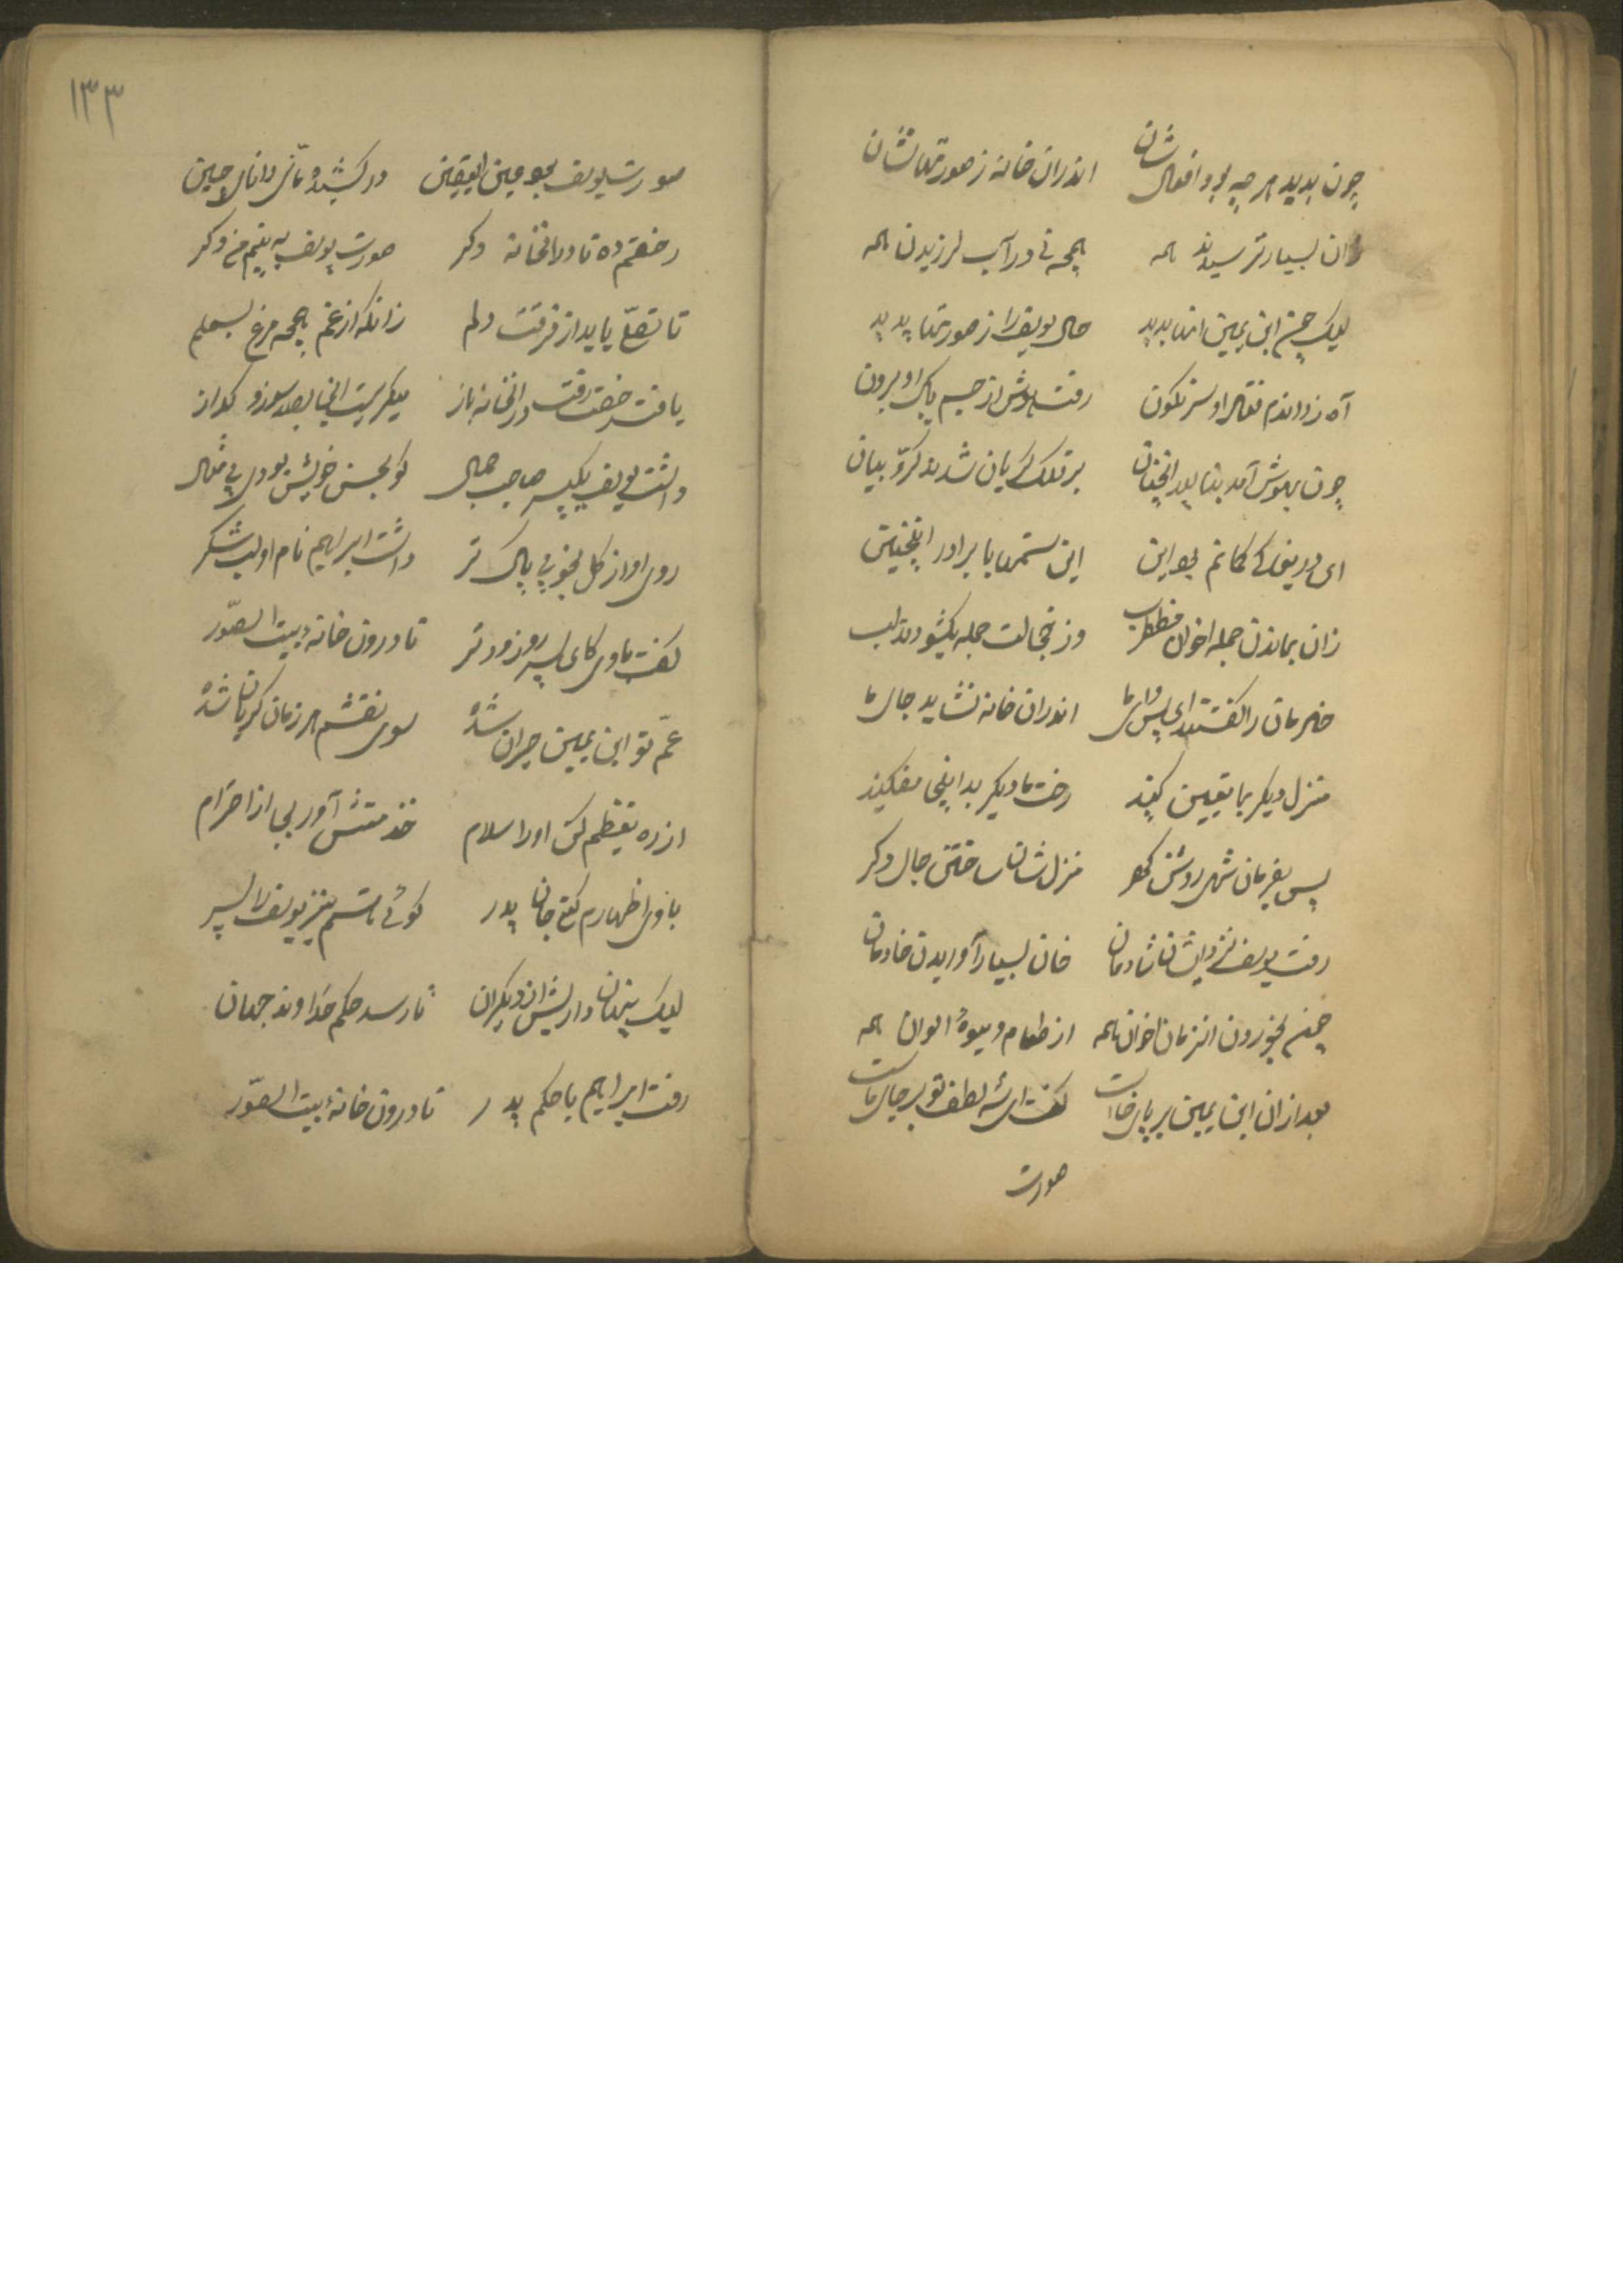 چون بدید هر چه بود افعال‌شان اندران خانه ز صورتهانشان
زان بسیار ترسیدند همه همچه نی در آب لرزیدن همه
لیک چشم ابن یمین انها بدید حال یوسف را ز صورتها پدید
آه زد اندم فتاد او سرنکون رفت هوش از جسم پاک او برون
چون بهوش آمد بنالید انچنان بر فلک کریان شدند کرّوبیان
ای دریغا کی کمانم بود این این ستمها با برادر اینچنین
زان بماندن جمله اخوان مضطرب وز خجالت جمله بکشودند لب
خادمان را کفتند ای وای ما اندران خانه نشاید جای ما
منزل دیکر بما تعیین کنید رخت ما دیکر بداینجا مفکنید
پس بفرمان شهی روشن کهر منزل شان ساختن جای دکر
رفت یوسف نزد ایشان شادمان خان بسیار آوریدن خادمان
چمنه بخوردن انزمان اخوان همه از طعام و میوهٔ الوان همه
بعد ازان ابن یمین بر پای خاست کفت ای شه لطف تو بر جای ماست
صورت
۱۳۳
صورت یوسف بود عین الیقین در کشیده مانی دانای چین
رخصتم ده تا در انخانه دکر صورت یوسف به بینم من دکر
تا تسلّی یابد از فرقت دلم زانکه از غم همچه مرغ بسملم
یافت رخصت رفت در انخانه باز میکریست انجا بصد سوز و کداز
داشت یوسف یک پسر صاحب جمال کو بحسن خویش بودی بی مثال
روی او از کل بخوبی پاک تر داشت ابراهیم نام او لب شکر
کفت با وی کای پسر رو زودتر تا درون خانهٔ بیت الصّور
عمّ تو ابن یمین حیران شده سوی نقشم هر زمان کریان شده
از ره تعظیم کن او را سلام خدمتش آور بجا از احترام
با وی اظهارم مکن جان پدر کوئی باشم نیز یوسف را پسر
لیک پنهان دار پیش از دیکران تا رسد حکم خداوند جهان
رفت ابراهیم با حکم پدر تا درون خانهٔ بیت الصّور